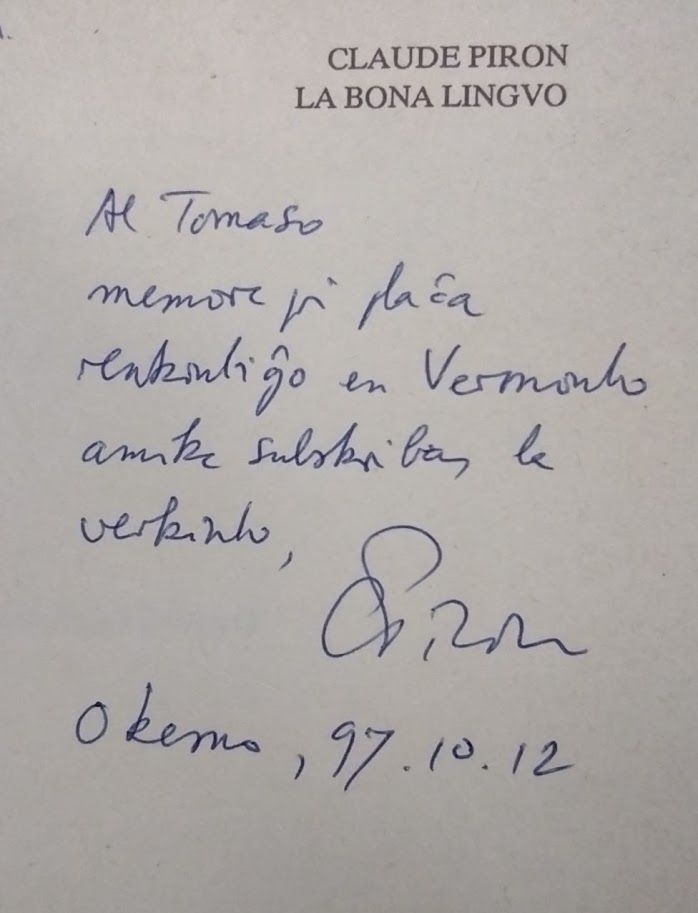 CLAUDE PIRON
LA BONA LINGVO
Al Tomaso
memore pri plaĉa
renkontiĝo en Vermonto
amike subskribas la
verkinto,
CPiron
Okemo, 97.10.12